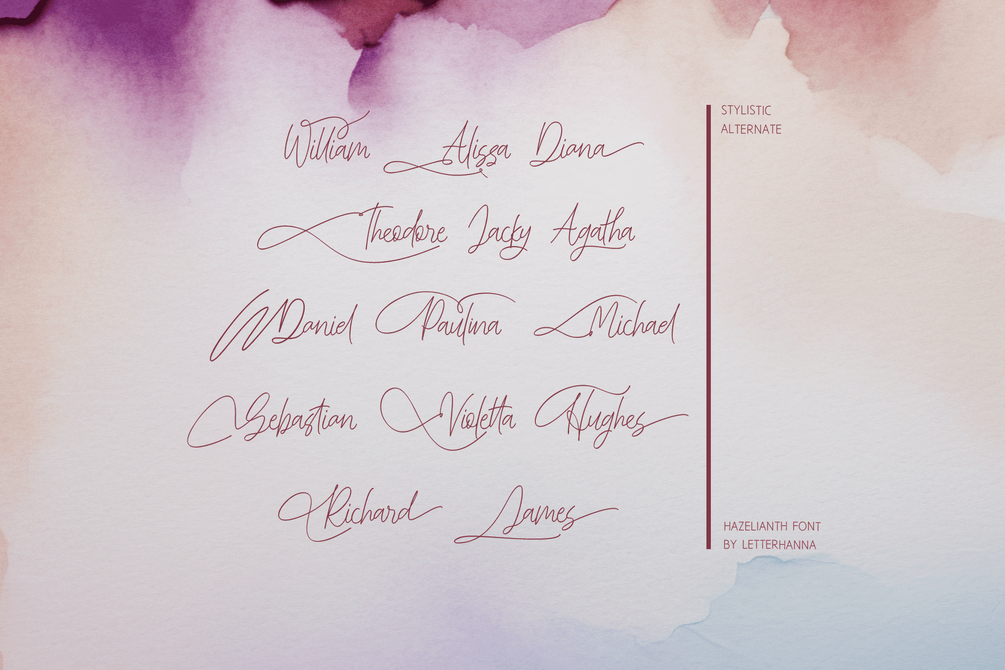 William Alissa Diana
Theodore Jacky Agatha
Daniel Paulina Michael
Sebastian Violetta Hughes
Richard James
STYLISTIC
ALTERNATE
HAZELIANTH FONT
BY LETTERHANNA